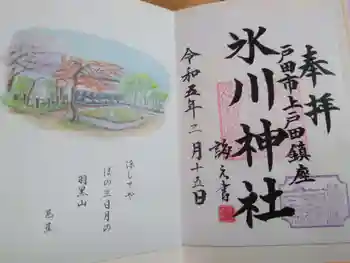 奉拝
戸田市上戸田鎮座
氷川神社
謹文書
令和五年二月十五日
涼しさや
ほの三日月の
羽黒山
芭蕉